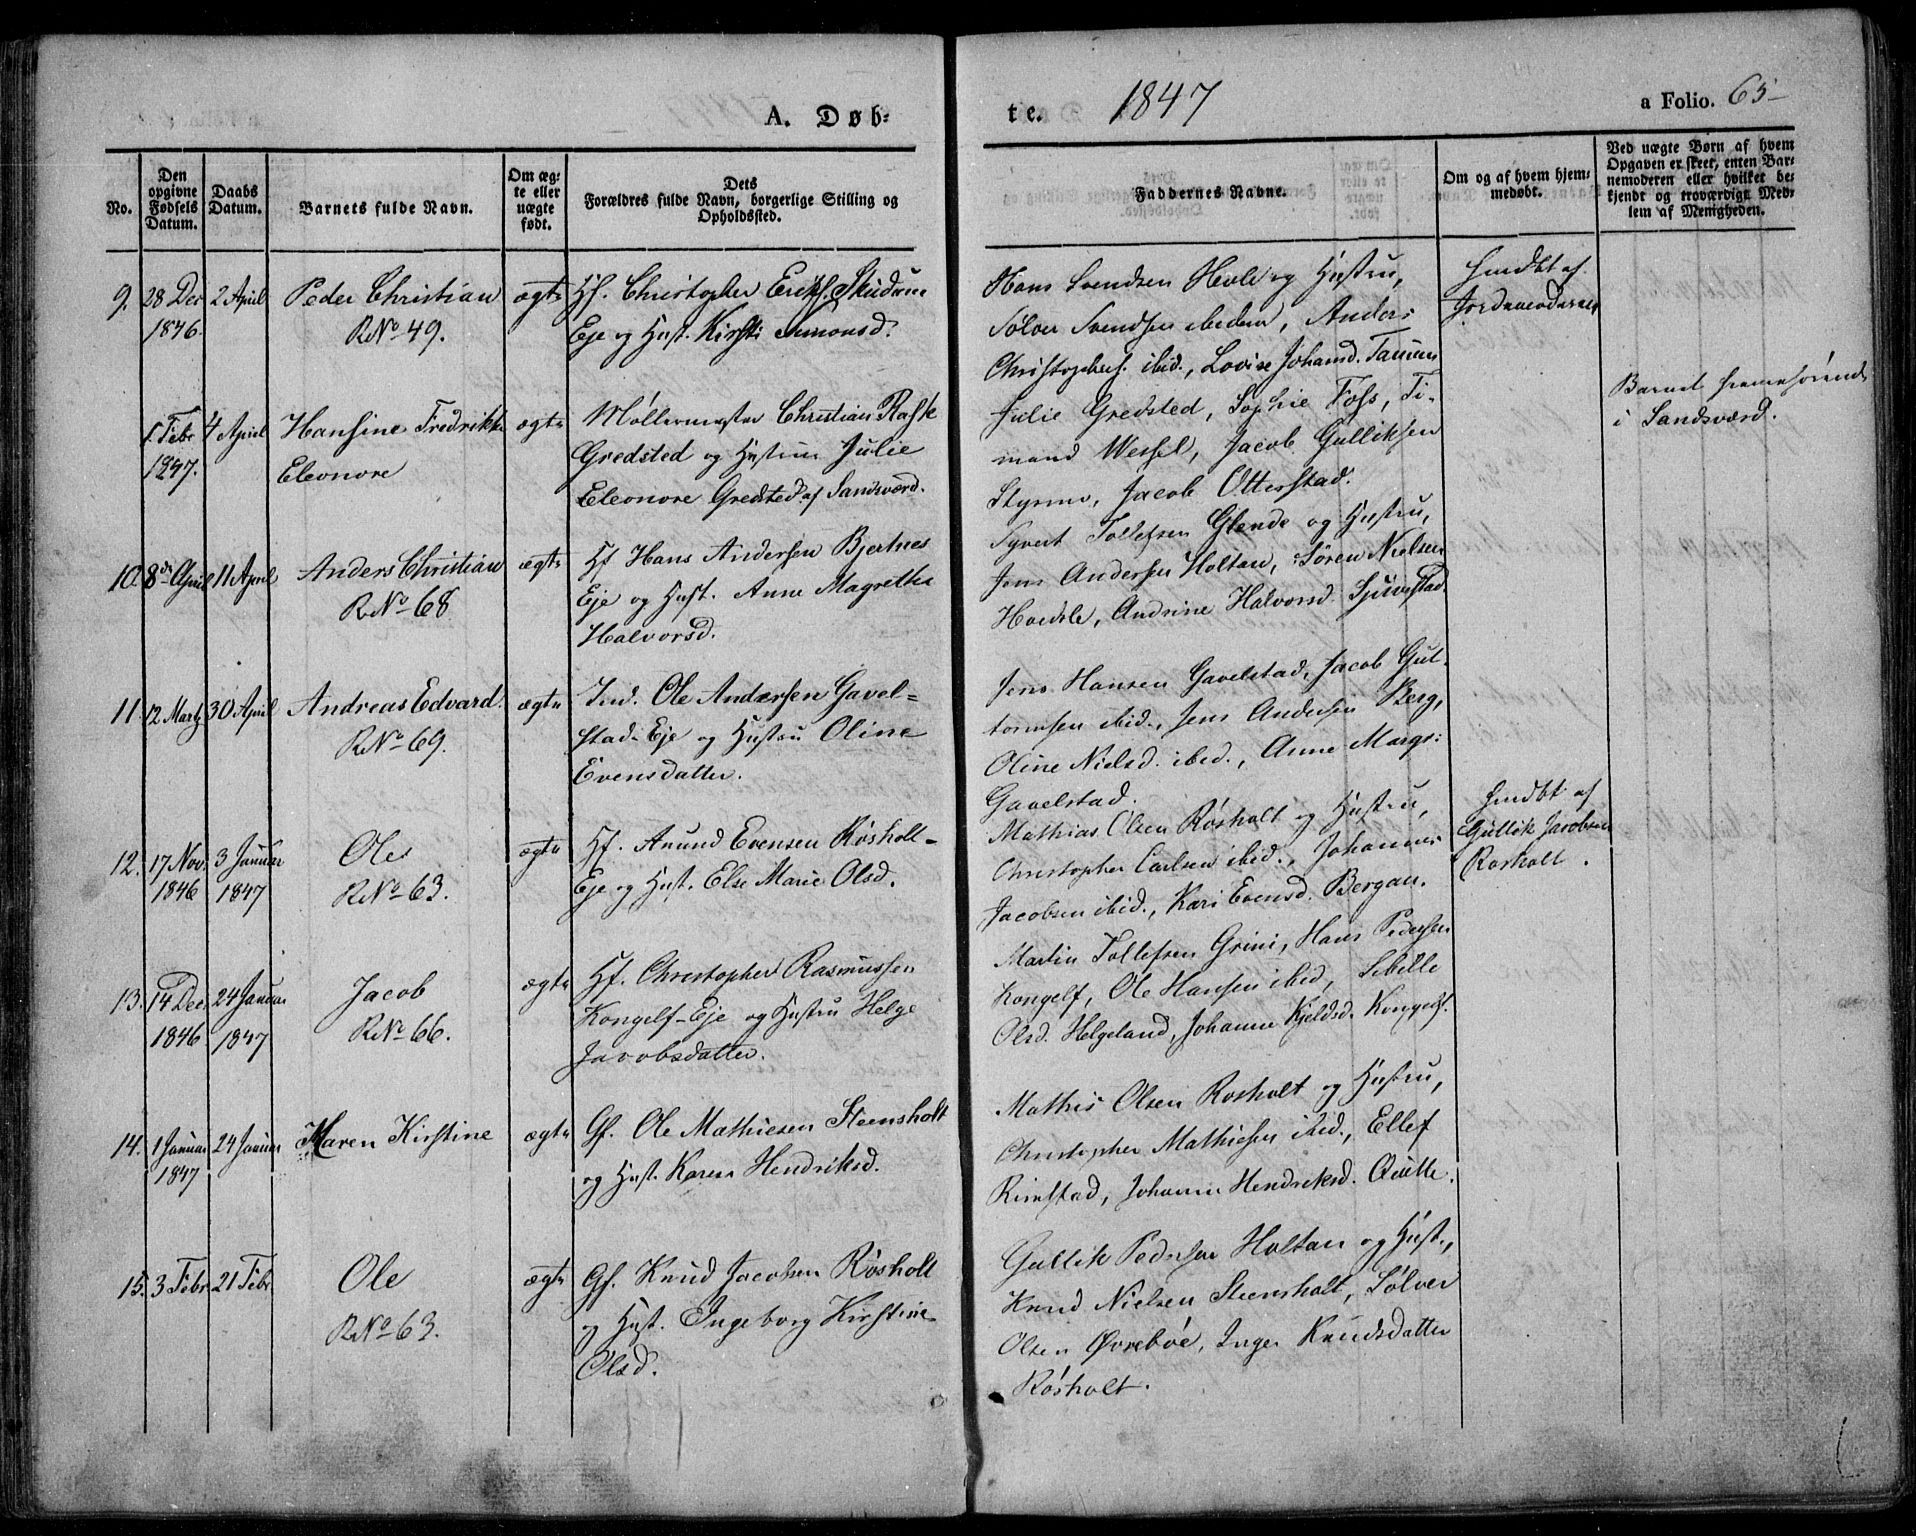 A. Døb-
te. 1847
a Folio. 65
No.
Den
opgivne
Fødsels
Datum.
Daabs
Datum.
Barnets fulde Navn.
Om æg-
te eller
uægte
født.
Dets
Forældres fulde Navn, borgerlige Stilling og
Opholdssted.
Faddernes Navne.
Om og af hvem hjem-
medøbt.
Ved uægte Børn af hvem
Opgaven er skeet, enten Bar-
nemoderen eller hvilket be-
kjendt og troværdigt Med-
lem af Menigheden.
9. 28 Dec 2 April Peder Christian ægte Hf. Christopher Eriks. Skudrue
1846. RNo 49. Eje og Hust. Kirsti Simonsd.
Hans Svendsen Hevle og Hustru,
Sølver Svendsen ibidem, Anders
Christophers. ibid., Lovise Johansd. Tanum
Hmdbt af
Jordmoderen
1. Febr 4 April Hansine Fredrikke ægte Møllermester Christian Rask
1847. Eleonore Gredsted og Hustru Julie
Eleonore Gredsted af Sandsværd.
Julie Gredsted, Sophie Foss, Ti-
mand Wessel, Jacob Gulliksen
Styrmo, Jacob Otterstad.
Barnet fremstillet
i Sandsværd.
10. 8de April 11 April Anders Christian ægte Hf Hans Andersen Bjertnes
RNo 68 Eje og Hust. Anne Magrethe
Halvorsd.
Syvert Tollefsen Glende og Hustru,
Jens Andersen Holtan, Søren Nielsen
Hvedsle, Andrine Halvorsd. Sjuvestad.
11. 12 Marts 30 April Andreas Edvard. ægte Ind. Ole Andersen Gavel-
RNo 69. stad-Eje og Hustru Oline
Evensdatter.
Jens Hansen Gavelstad, Jacob Gut-
tormsen ibid., Jens Andersen Berg,
Oline Nielsd. ibid., Anne Margr:
Gavelstad.
12. 17 Nov. 3 Januar Ole ægte Hf. Anund Evensen Røsholt-
1846 1847 RNo 63. Eje og Hust. Else Marie Olsd.
Mathias Olsen Røsholt og Hustru,
Christopher Carlsen ibid., Johannes
Jacobsen ibid., Kari Evensd. Bergan.
Hmdbt af
Gullik Jacobsen
Rosholt.
13. 14 Dec. 24 Januar Jacob ægte Hf. Christopher Rasmussen
1846 1847 RNo 66. Kongelf-Eje og Hustru Helge
Jacobsdatter.
Martin Tollefsen Grini, Hans Pedersen
Kongelf, Ole Hansen ibid, Sibille
Olsd. Helgeland, Johanne Kjeldsd. Kongelf.
14. 1 Januar 24 Januar Maren Kirstine ægte Gf. Ole Mathiesen Steensholt
1847 og Hust. Karen Hendriksd.
Mathis Olsen Rosholt og Hustru,
Christopher Mathiesen ibid., Ellef
Rimstad, Johanne Hendriksd.
15. 3 Febr 21 Febr Ole ægte Gf. Knud Jacobsen Røsholt
RNo 63. og Hust. Ingeborg Kirstine
Olsd.
Gullik Pedersen Holtan og Hust.,
Knud Nielsen Steensholt, Sølver
Olsen Øvrebøe, Inger Knudsdatter
Røsholt.